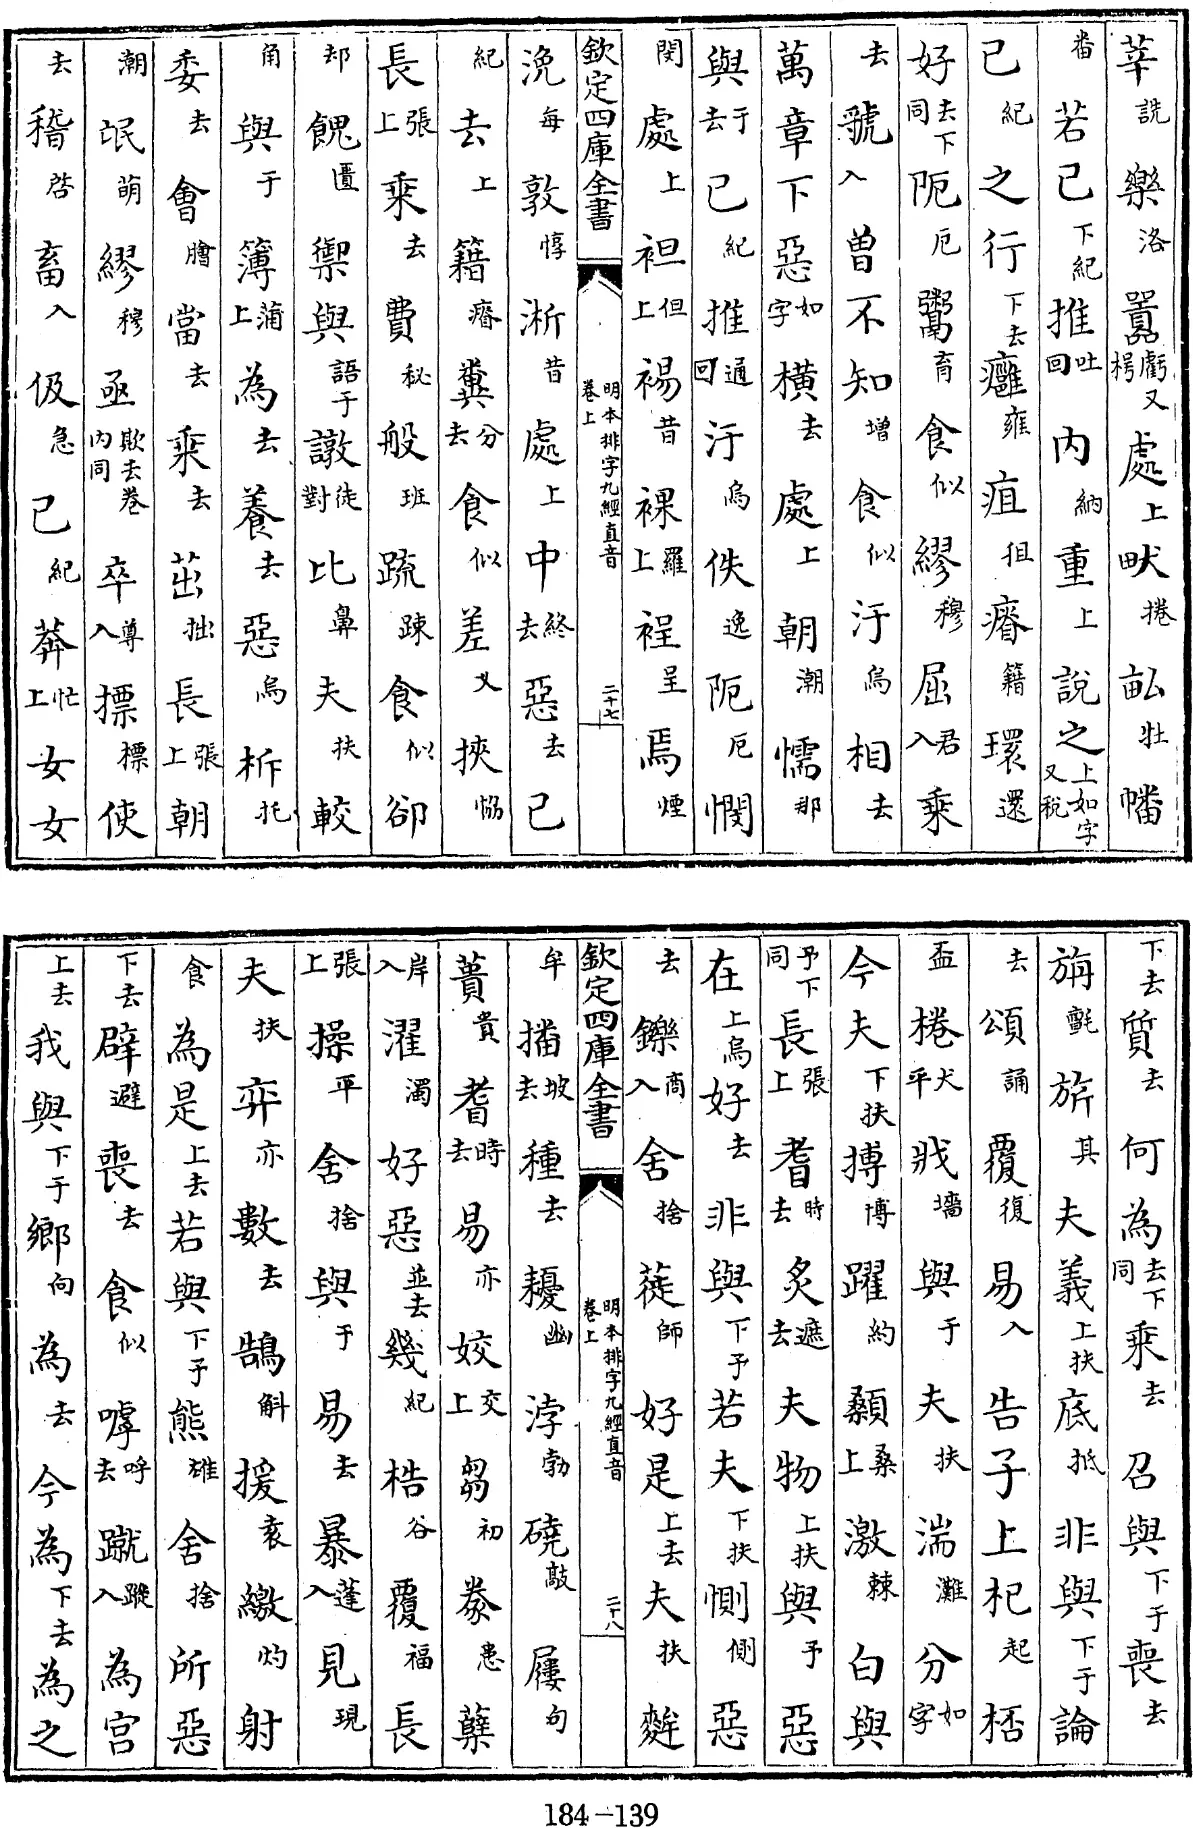 莘詵樂洛囂虧又枵處上畎捲畝牡幡
番若已下紀推吐回內納重上說之上如字又稅
已紀之行下去癰雍疽狙瘠籍環還
好去下同阨厄鬻育食似繆穆屈君入乘
去虢入曾不知增食似汙烏相去
萬章下惡如字橫去處上朝潮懦那
與于去已紀推通回汙烏佚逸阨厄憫
閔處上袒但上裼昔裸羅上裎呈焉煙
欽定四庫全書 明本排字九經直音卷上 二十七
浼每敦惇淅昔處上中終去惡去已
紀去上籍瘠糞分去食似差乂挾恊
長張上乘去費秘般班疏踈食似卻
却餽匱禦與語于譈徒對比鼻夫扶較
角與于簿蒲上為去養去惡烏柝托
委去會膾當去乘去茁拙長張上朝
潮氓萌繆穆亟欺去卷內同卒尊入摽標使
去稽啓畜入伋急已紀莽忙上女女
下去質去何為去下同乘去召與下于喪去
旃氈旂其夫義上扶底抵非與下于論
去頌誦覆復易入告子上杞起桮
盃棬犬平戕墻與于夫扶湍灘分如字
今夫下扶搏博躍約顙桑上激棘白與
予下同長張上耆時去炙遮去夫物上扶與予惡
在上烏好去非與下予若夫下扶惻側惡
去鑠商入舍捨蓰師好是上去夫扶麰
欽定四庫全書 明本排字九經直音卷上 二十八
牟播坡去種去耰幽浡勃磽敲屨句
蕢貴耆時去易亦姣交上芻初豢患櫱
岸入濯濁好惡並去幾紀梏谷覆福長
張上操平舍捨與于易去暴蓬入見現
夫扶弈亦數去鵠斛援袁繳灼射
食為是上去若與下予熊雄舍捨所惡
下去辟避喪去食似嘑呼去蹴蹤入為宮
上去我與下于鄉向為去今為下去為之
184-139